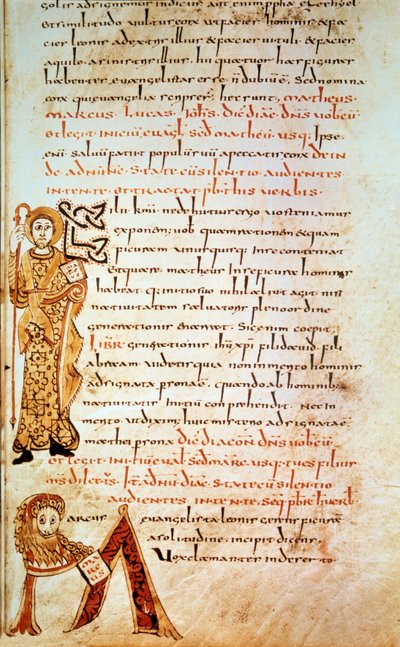 et similitudo uultus eorum ut facies hominis et fa
cies leonis adextris illius et facies uituli et facies
aquile asinistris illius. hii quatuor has figuras
habentes euangelistas esse n̄ dubiū ē. Sed nomina
eorum qui euangelia scripser. hec sunt. matheus
marcus. lucas. Johs. Dic̄ diac̄ dn̄s uobcū
et legit iniciū euāgl. scd matheū. usq. Ipse
enī saluū faciet populū suū apeccatis eorū dein
de adnunc. State cū silentio audientes
intente. et tractat pbr his uerbis.
Filii kmi ne diutius ergo uos teneamus
exponem; uob quam rationem et quam
figuram unusquisq; in se contineat
et quare matheus in se figura hominis
habeat. quia initio suo nihil aliut agit nisi
natiuitatem saluatoris pleno ordine
generationis enarret. Sic enim coepit.
LIBR generationis ihū xpī filii dauid. filī
abraam uidetis quia non inmerito hominis
adsignata persona ē. quando ab hominib;
natiuitatis initiū conprehendit. nec in
merito ut diximus huic misterio adsignata ē
mathei persona Dic̄ diacon dn̄s uobcū
et legit initiū eual scd marc. usq. tu es filius
ms dilect; It̄ adnū diac̄ State cū silentio
audientes intente. Seq pbr his uerb.
marcus euangelista leonis gerens figura
a solitudine, incipit dicere,
Uox clamantis in deserto